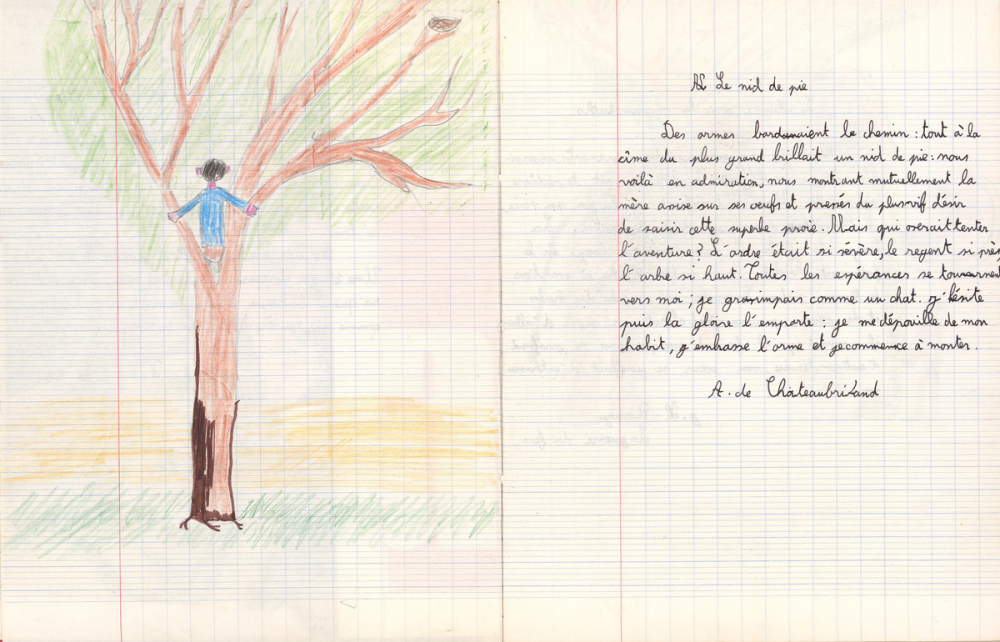 Le nid de pie
Des ormes bordaient le chemin : tout à la
cîme du plus grand brillait un nid de pie : nous
voilà en admiration, nous montrant mutuellement la
mère assise sur ses œufs et pressés du plus vif désir
de saisir cette superbe proie. Mais qui oserait tenter
l'aventure ? L'ordre était si sévère, le regent si près
l'arbe si haut. Toutes les espérances se tournent
vers moi ; je grimpais comme un chat. J'hésite
puis la gloire l'emporte : je me dépouille de mon
habit, j'embrasse l'orme et je commence à monter.
A. de Châteaubriand